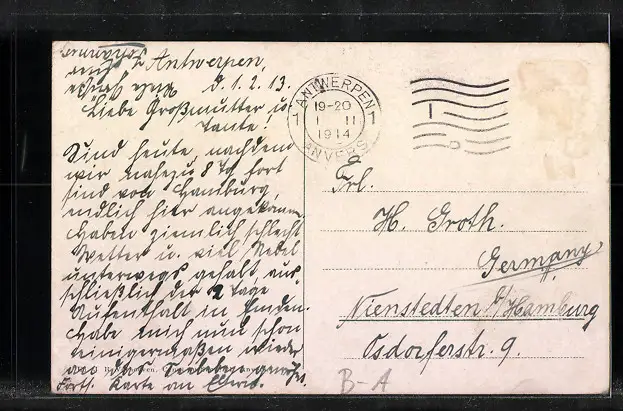 Antwerpen,
d. 1. 2. 13.
Liebe Großmutter u.
Tante!
Sind heute, nachdem
wir nahezu 8 Tg. fort
sind von Hamburg,
endlich hier angekommen.
Haben ziemlich schlecht
Wetter u. viel Nebel
unterwegs gehabt, aus
schließlich der 2 Tage
Aufenthalt in Emden.
Habe mich nun schon
einigermaßen wieder
an das
Forts. Karte an
ANTWERPEN
1 1
19-20
1 II
1914
ANVERS
Frl.
H. Groth.
Germany
Nienstedten b/Hamburg
Osdorferstr. 9.
B-A